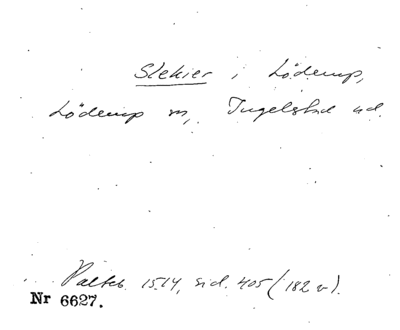 Slekier i Löderup,
Löderup sn, Ingelstad hd.
Palteb. 1514, sid. 405 (182 v).
Nr 6627.